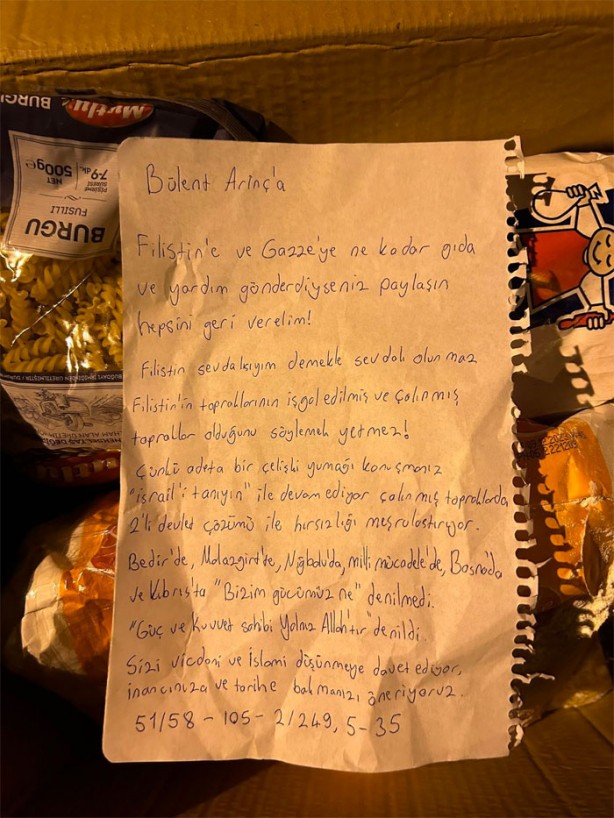 BURGU
Mutlu
PİŞİRME
SÜRESİ
7-9 dk.
NET
500g e
FUSILLI
BURGU
Bülent Arınç'a
Filistin'e ve Gazze'ye ne kadar gıda
ve yardım gönderdiyseniz paylaşın
hepsini geri verelim!
Filistin sevdalısıyım demekle sevdalı olunmaz
Filistin'in topraklarının işgal edilmiş ve çalınmış
topraklar olduğunu söylemek yetmez!
Çünkü adeta bir çelişki yumağı konuşmanız
"israil'i tanıyın" ile devam ediyor çalınmış topraklarda
2'li devlet çözümü ile hırsızlığı meşrulaştırıyor.
Bedir'de, Malazgirt'te, Niğbolu'da, milli mücadele'de, Bosna'da
ve Kıbrıs'ta "Bizim gücümüz ne" denilmedi.
"Güç ve Kuvvet sahibi Yalnız Allah'tır" denildi.
Sizi vicdani ve İslami düşünmeye davet ediyor,
inancınıza ve tarihe bakmanızı öneriyoruz.
51/58 - 105 - 2/249, 5-35